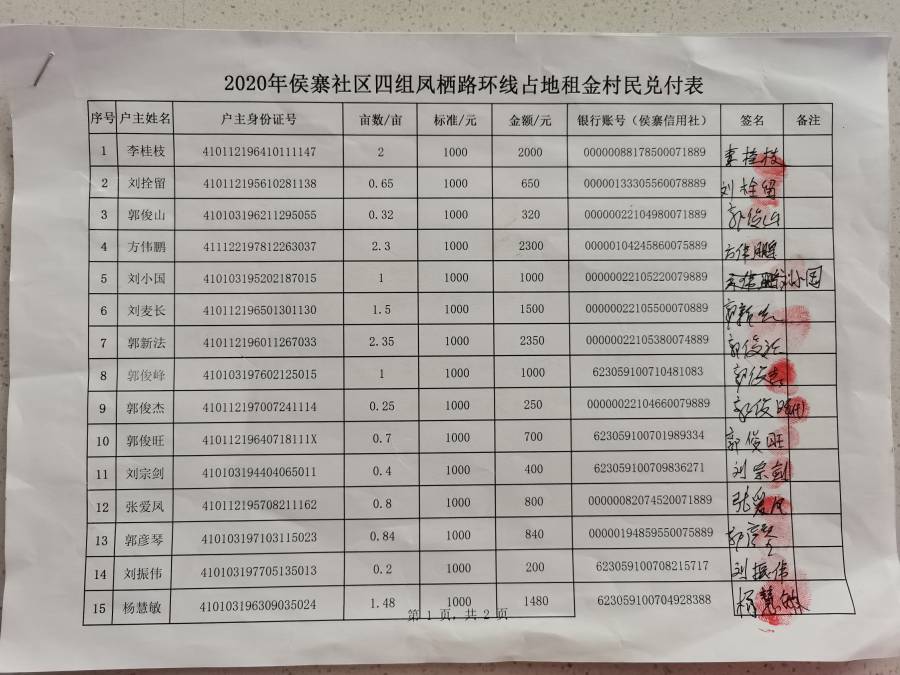 2020年侯寨社区四组凤栖路环线占地租金村民兑付表
序号 户主姓名 户主身份证号 亩数/亩 标准/元 金额/元 银行账号（侯寨信用社） 签名 备注
1 李桂枝 410112196410111147 2 1000 2000 00000088178500071889 李桂枝
2 刘拴留 410112195610281138 0.65 1000 650 00000133305560078889 刘拴留
3 郭俊山 410103196211295055 0.32 1000 320 00000022104980071889 郭俊山
4 方伟鹏 411122197812263037 2.3 1000 2300 00000104245860075889 方伟鹏
5 刘小国 410103195202187015 1 1000 1000 00000022105220079889 刘小国
6 刘麦长 410112196501301130 1.5 1000 1500 00000022105500070889
7 郭新法 410112196011267033 2.35 1000 2350 00000022105380074889
8 郭俊峰 410103197602125015 1 1000 1000 623059100710481083
9 郭俊杰 410112197007241114 0.25 1000 250 00000022104660079889
10 郭俊旺 41011219640718111X 0.7 1000 700 623059100701989334 郭俊旺
11 刘宗剑 410103194404065011 0.4 1000 400 623059100709836271 刘宗剑
12 张爱凤 410112195708211162 0.8 1000 800 00000082074520071889 张爱凤
13 郭彦琴 410103197103115023 0.84 1000 840 00000194859550075889 郭彦琴
14 刘振伟 410103197705135013 0.2 1000 200 623059100708215717 刘振伟
15 杨慧敏 410103196309035024 1.48 1000 1480 623059100704928388 杨慧敏
第 1 页，共 2 页